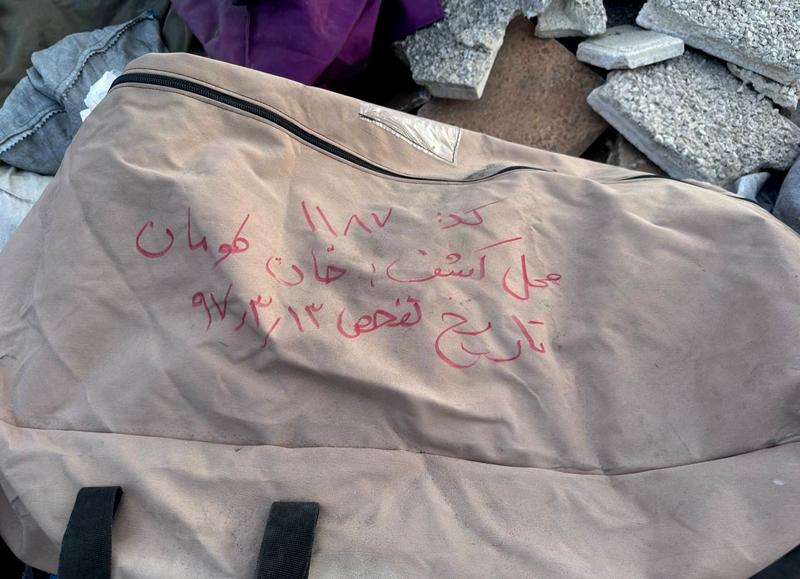 کد: ۱۱۸۷
محل کشف: خان طومان
تاریخ تفحص ۹۷٫۳٫۱۳